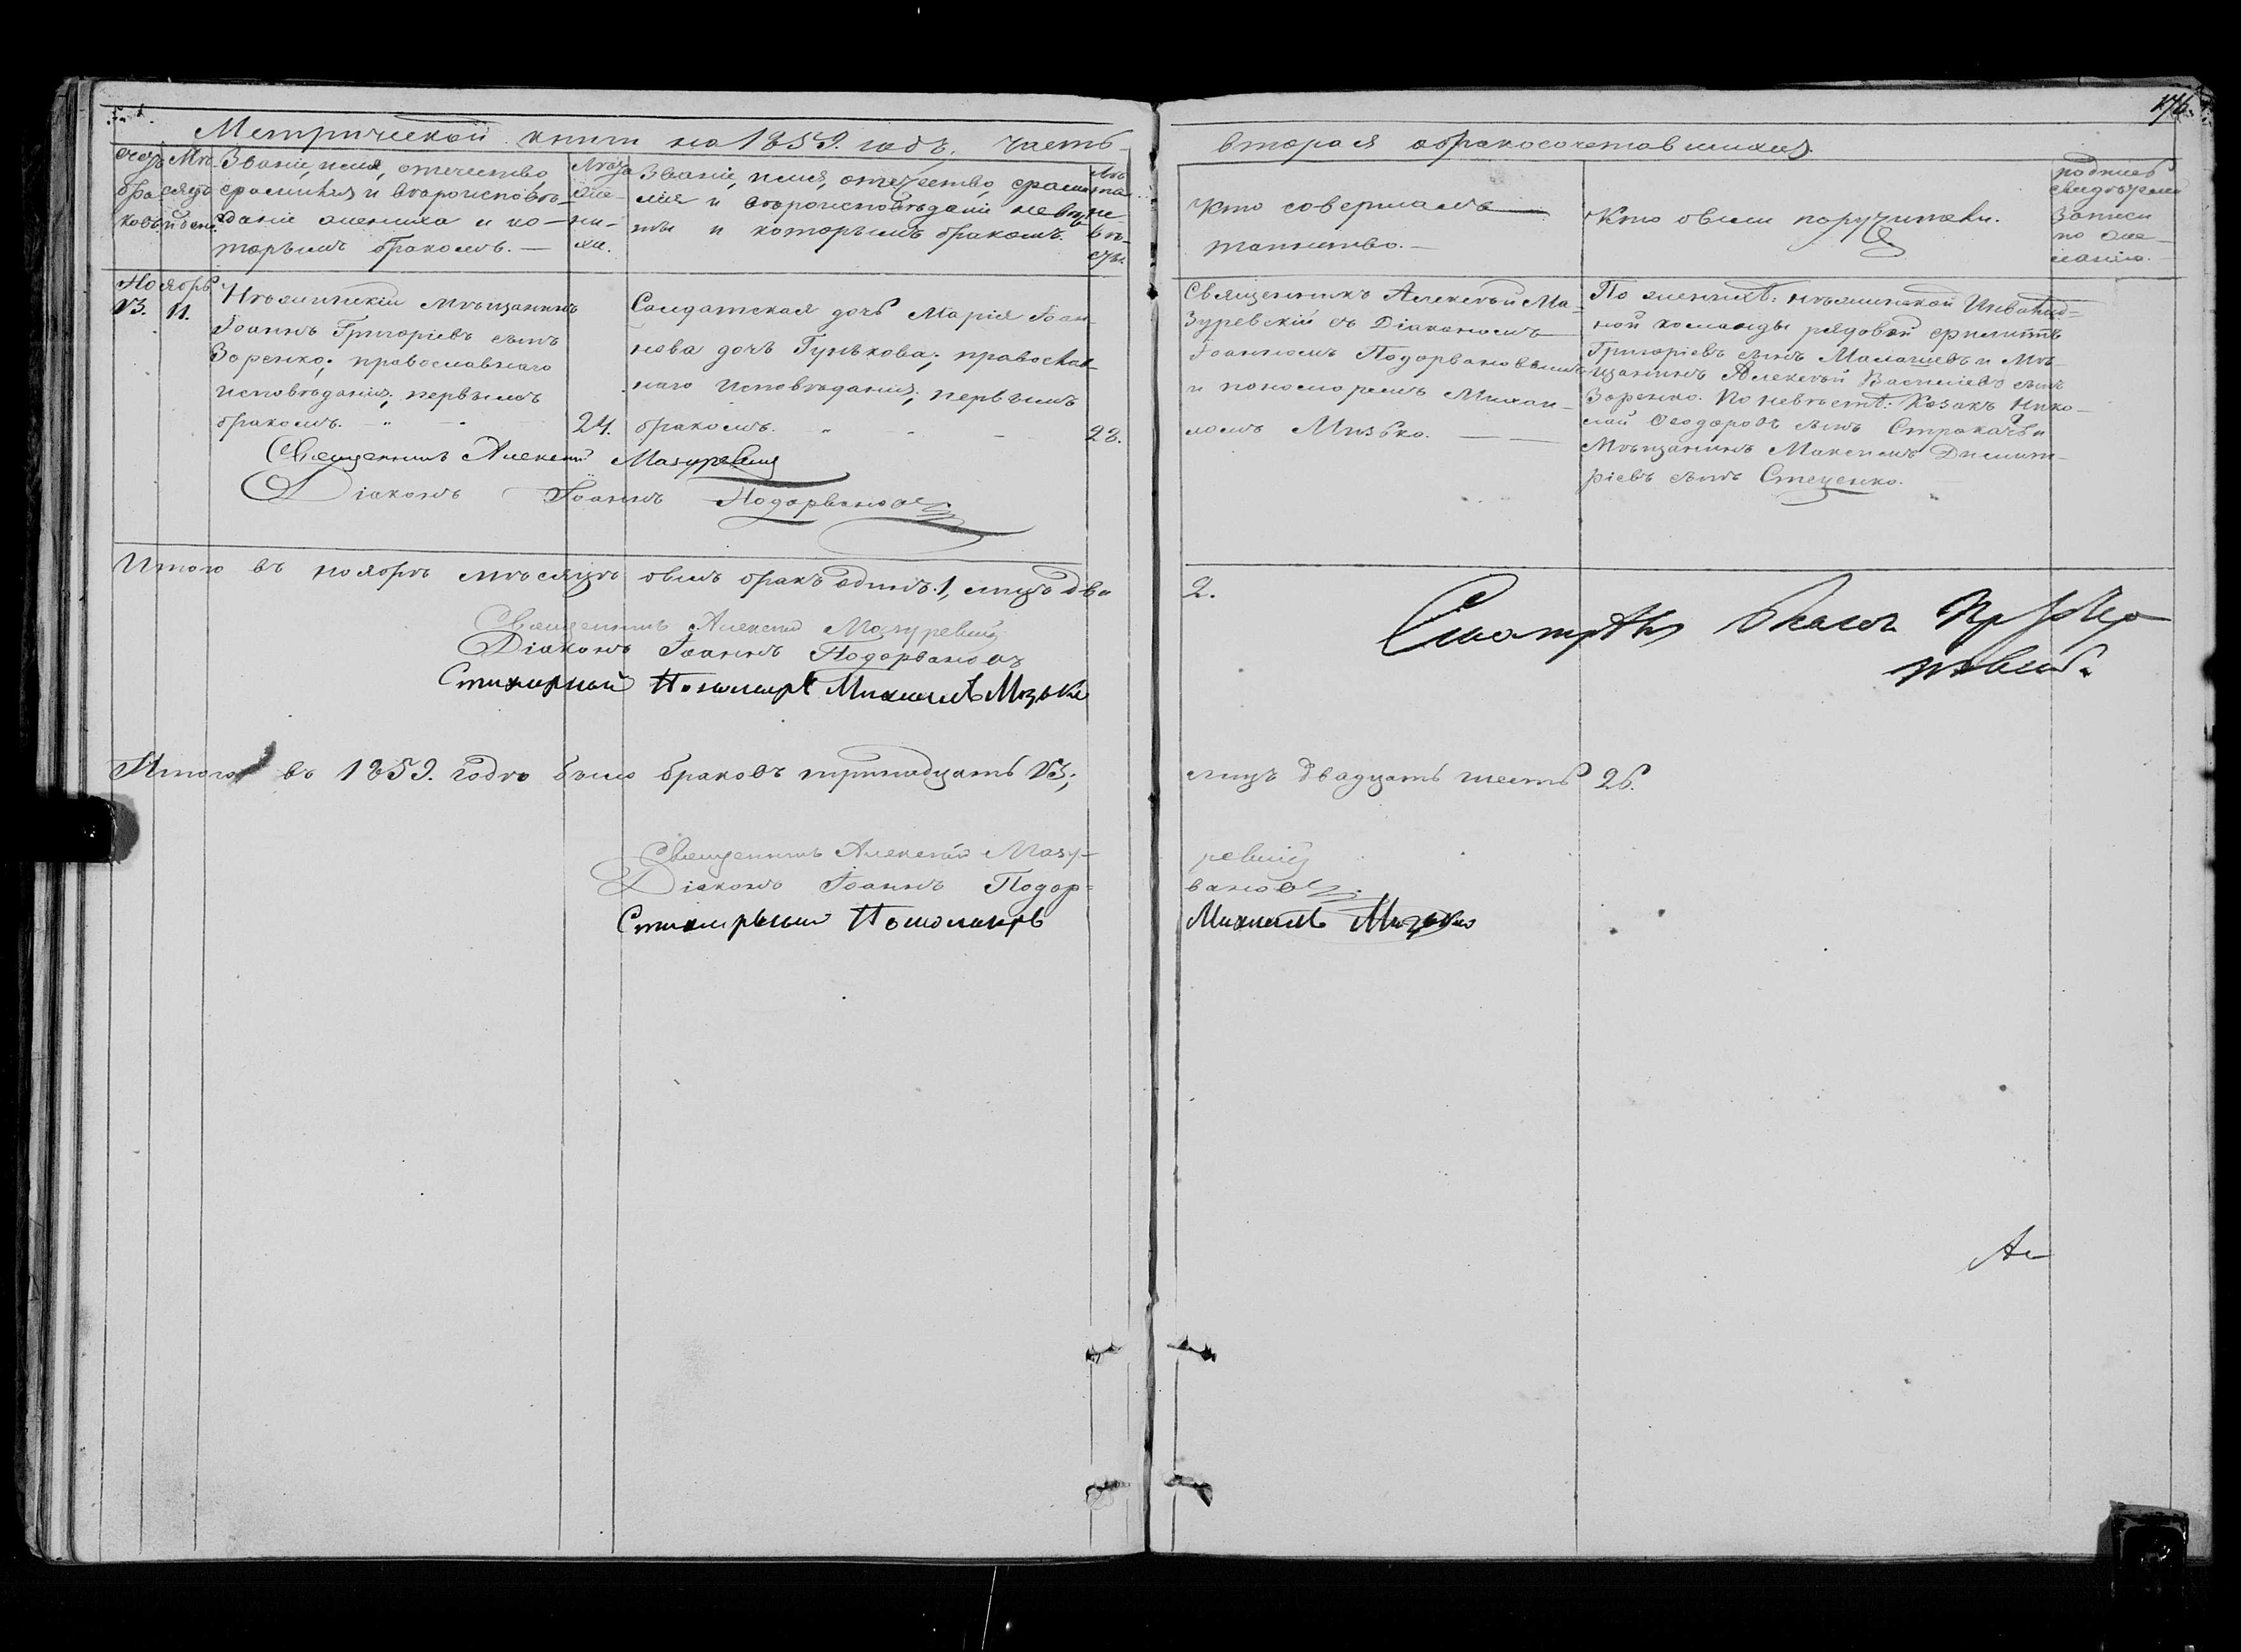 176.
Метрической книги на 1859. годъ. Часть
вторая о бракосочетавшихся.
Счетъ
бра-
ковъ.
Мѣ-
сяцъ
и день.
Званіе, имя, отечество
фамилія и вѣроисповѣ-
даніе жениха и ко-
торымъ бракомъ. —
Лѣта
же-
ни-
ха.
Званіе, имя, отечество, фами-
лія и вѣроисповѣданіе невѣ-
сты и которымъ бракомъ.
Лѣ-
та
не-
вѣ-
сты.
Кто совершалъ
таинство. —
Кто были поручители.
подпись
свидѣтелей
записи
по же-
ланію.
Ноябрь
13. 11.
Нѣжинскій мѣщанинъ
Іоаннъ Григоріевъ сынъ
Зоренко; православнаго
исповѣданія; первымъ
бракомъ.
24.
Солдатская дочь Марія Іоан-
нова дочь Гунькова; православ-
наго исповѣданія; первымъ
бракомъ.
22.
Священникъ Алексѣй Ма-
зуревскій съ Діакономъ
Іоанномъ Подорвановымъ
и пономоремъ Михаи-
ломъ Мизько.
По женихѣ: нѣжинской Инвалид-
ной команды рядовой Филиппъ
Григоріевъ сынъ Малашевъ и Мѣ-
щанинъ Алексѣй Василіевъ сынъ
Зоренко. По невѣстѣ: Козакъ Нико-
лай Феодоровъ сынъ Стракачъ и
Мѣщанинъ Максимъ Димит-
ріевъ сынъ Стеценко.
Священникъ Алексій Мазуревскій
Діаконъ Іоаннъ Подорвановъ
Итого въ ноябрѣ мѣсяцѣ былъ бракъ одинъ. 1, лицъ два
2.
Священникъ Алексій Мазуревскій
Діаконъ Іоаннъ Подорвановъ
Стихарный Пономарь Михаилъ Мизько
Итого въ 1859. годѣ было браковъ тринадцать 13;
лицъ двадцать шесть 26.
Священникъ Алексій Мазу-
ревскій
Діаконъ Іоаннъ Подор-
вановъ
Стихарный Пономарь
Михаилъ Мизько